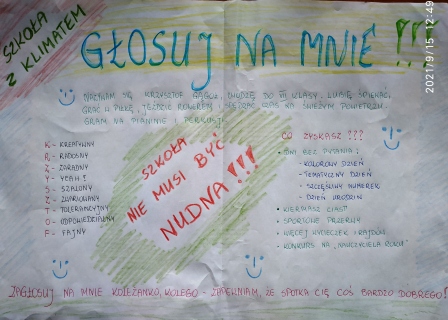 SZKOŁA
Z KLIMATEM
GŁOSUJ NA MNIE !!!
NAZYWAM SIĘ KRZYSZTOF CHODZĘ DO KLASY. LUBIĘ ŚPIEWAĆ,
GRAĆ W PIŁKĘ, JEŹDZIĆ ROWEREM, SPĘDZAĆ CZAS NA ŚWIEŻYM POWIETRZU.
GRAM NA PIANINIE I PERKUSJI.
K - KREATYWNY
R - RADOSNY
Z - ZARADNY
Y - YEAH!
S - SZALONY
Z - ZWARIOWANY
T - TOLERANCYJNY
O - ODPOWIEDZIALNY
F - FAJNY
SZKOŁA
NIE MUSI BYĆ
NUDNA!!!
CO ZYSKASZ???
• DNI BEZ PYTANIA:
- KOLOROWY DZIEŃ
- TEMATYCZNY DZIEŃ
- SZCZĘŚLIWY NUMEREK
- DZIEŃ URODZIN
• KIERMASZ CIAST
• SPORTOWE PRZERWY
• WIĘCEJ WYCIECZEK I RAJDÓW
• KONKURS NA „NAUCZYCIELA ROKU"
ZAGŁOSUJ NA MNIE KOLEŻANKO, KOLEGO - ZAPEWNIAM, ŻE SPOTKA CIĘ COŚ BARDZO DOBREGO!
2021/9/15 12:49